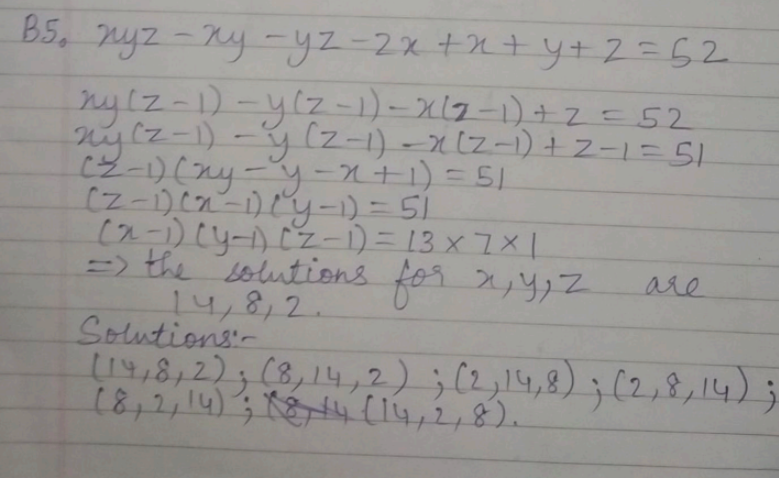 B5. xyz - xy - yz - zx + x + y + z = 52
xy(z-1) - y(z-1) - x(z-1) + z = 52
xy(z-1) - y(z-1) - x(z-1) + z-1 = 51
(z-1)(xy - y - x + 1) = 51
(z-1)(x-1)(y-1) = 51
(x-1)(y-1)(z-1) = 13 × 7 × 1
=> the solutions for x,y,z are
14, 8, 2.
Solutions:-
(14,8,2) ; (8,14,2) ; (2,14,8) ; (2,8,14) ;
(8,2,14) ; (8,14 (14,2,8).